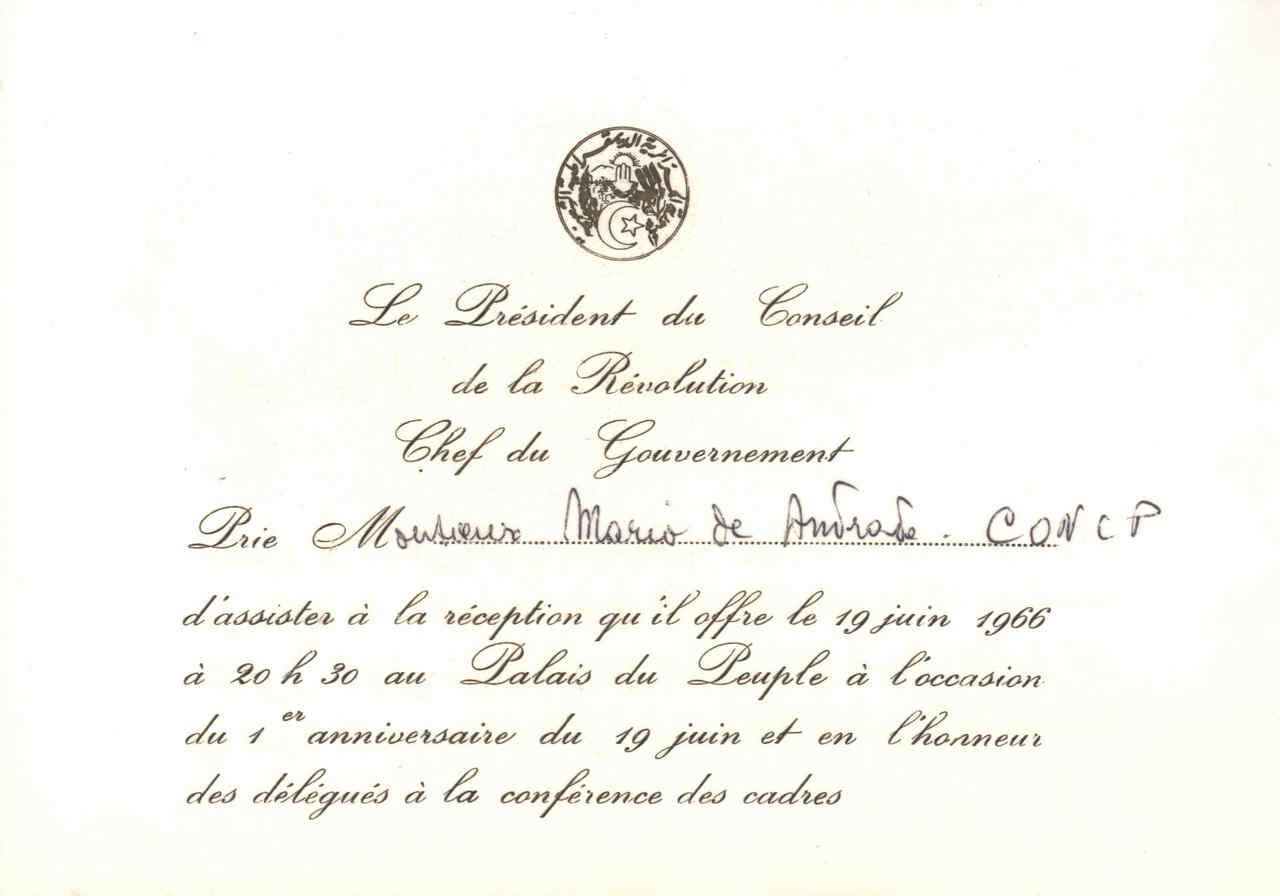 الجزائرية الديمقراطية الشعبية
Le Président du Conseil
de la Révolution
Chef du Gouvernement
Prie Monsieur Mario de Andrade. CONCP
d'assister à la réception qu'il offre le 19 juin 1966
à 20 h 30 au Palais du Peuple à l'occasion
du 1er anniversaire du 19 juin et en l'honneur
des délégués à la conférence des cadres